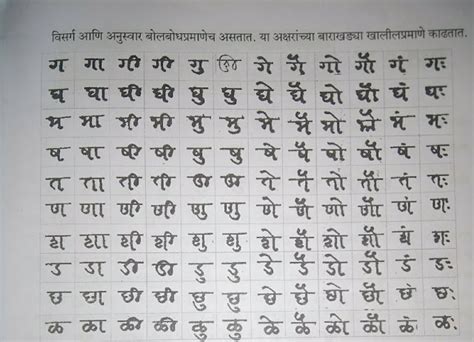 विसर्ग आणि अनुस्वार बोलबोधप्रमाणेच असतात. या अक्षरांच्या बाराखड्या खालीलप्रमाणे काढतात.
ग गा गी गी गु गे गै गो गौ गं गः
घ घा घी घी घु घु घे घै घो घौ घं घः
भ भा भी भी भु भु भे भै भो भौ भं भः
ष षा षी षी षु षु षे षै षो षौ षं षः
त ता ती ती ते तै तो तौ तं तः
ण णा णी णी णु णु णे णै णो णौ णं णः
श शा शी शी शु शु शे शै शो शौ शं शः
ड डा डी डी डु डु डे डै डो डौ डं डः
छ छा छी छी छु छु छे छै छो छौ छं छः
ळ ळा ळी ळी ळु ळु ळे ळै ळो ळौ ळं ळः